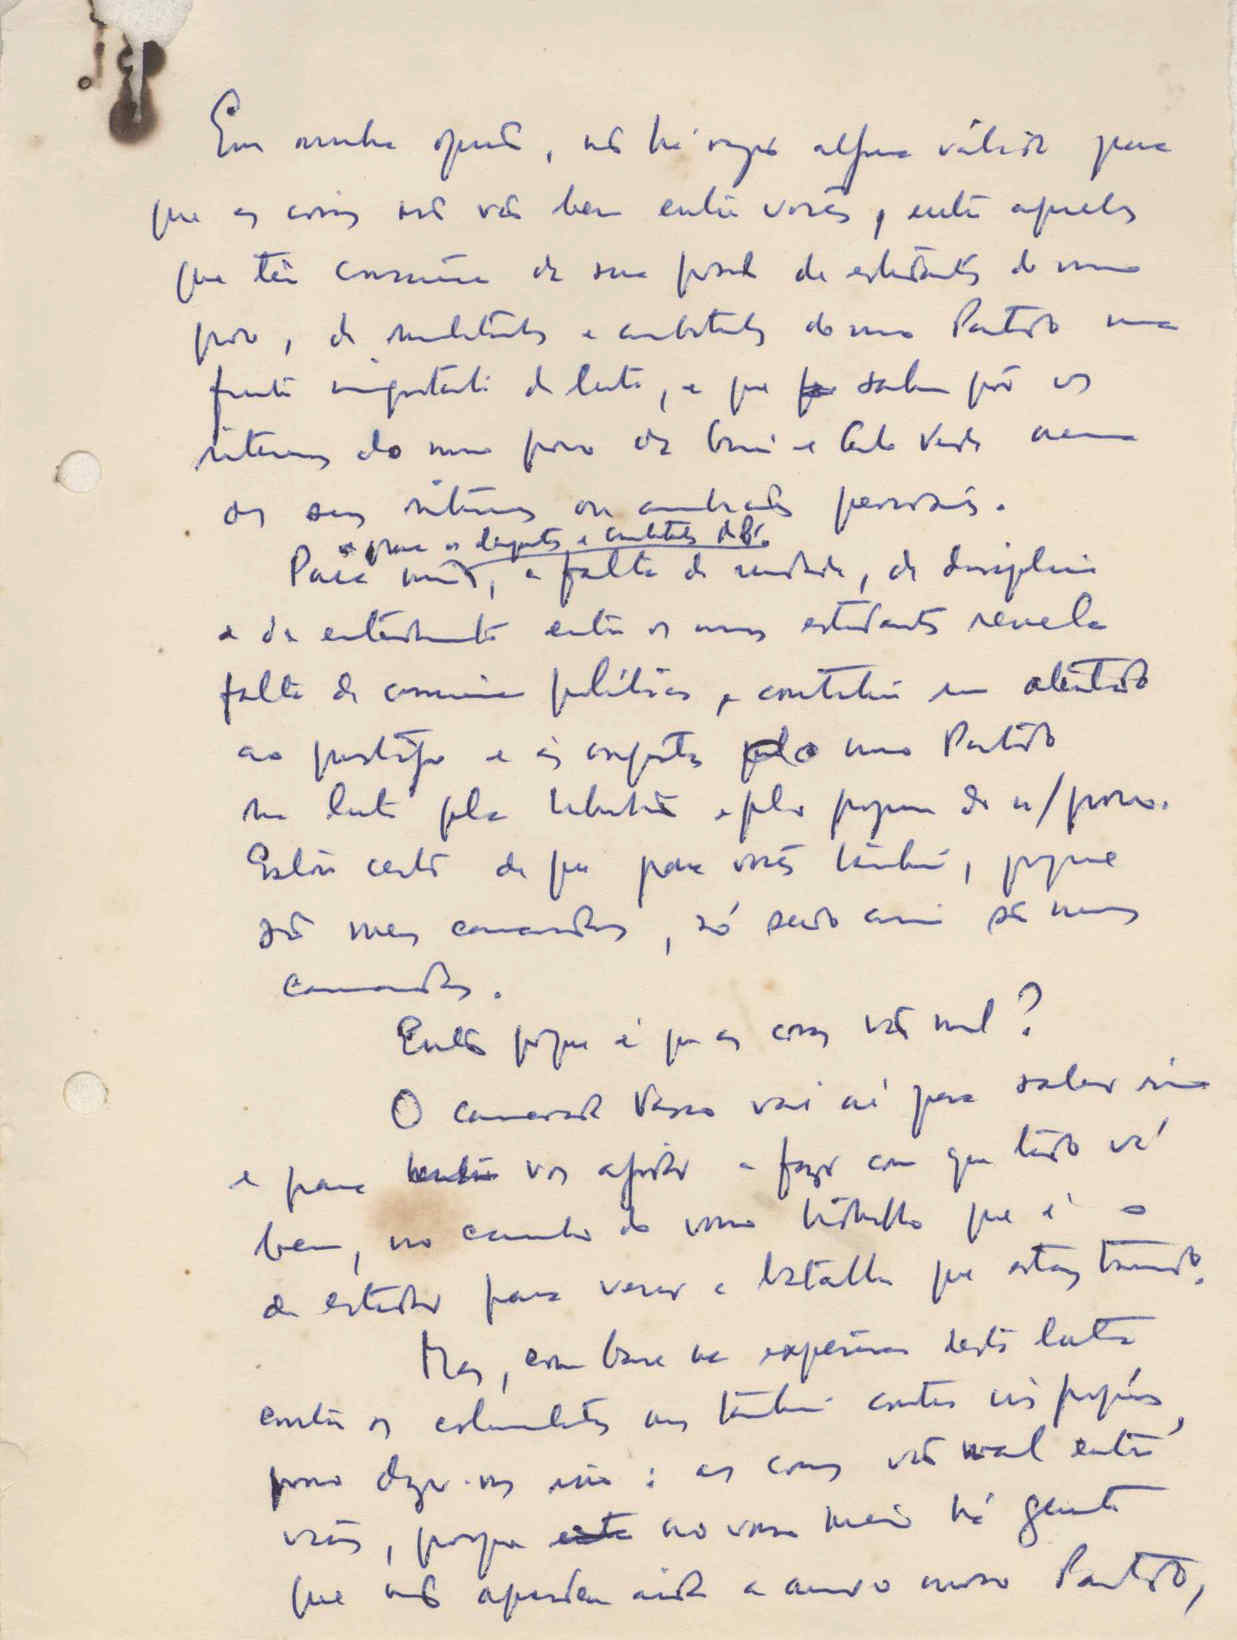 Em minha opinião, não há razão alguma válida para
que as coisas não vão bem entre vocês, entre aqueles
que têm consciência da sua posição de estudantes do nosso
povo, de militantes e combatentes do nosso Partido numa
frente importante da luta, e que sabem pôr os
interesses do nosso povo da Guiné e Cabo Verde acima
dos seus interesses ou ambições pessoais.
e para os dirigentes e combatentes do P.
Para mim, a falta de unidade, de disciplina
e de entendimento entre os nossos estudantes revela
falta de consciência política, e constitui um atentado
ao prestígio e às conquistas pelo nosso Partido
na luta pela libertação e pelo progresso do n/povo.
Estou certo de que para vocês também, porque
são meus camaradas, só sendo assim são meus
camaradas.
Então porque é que as coisas vão mal?
O camarada Vasco vai aí para saber isso
e para vos ajudar a fazer com que tudo vá
bem, no caminho do vosso trabalho que é o
de estudar para vencer a batalha que estais travando.
Mas, com base na experiência desta luta
contra os colonialistas mas também contra nós próprios,
posso dizer-vos isso: as coisas vão mal entre
vocês, porque no vosso meio há gente
que não aprendeu ainda a amar o nosso Partido,